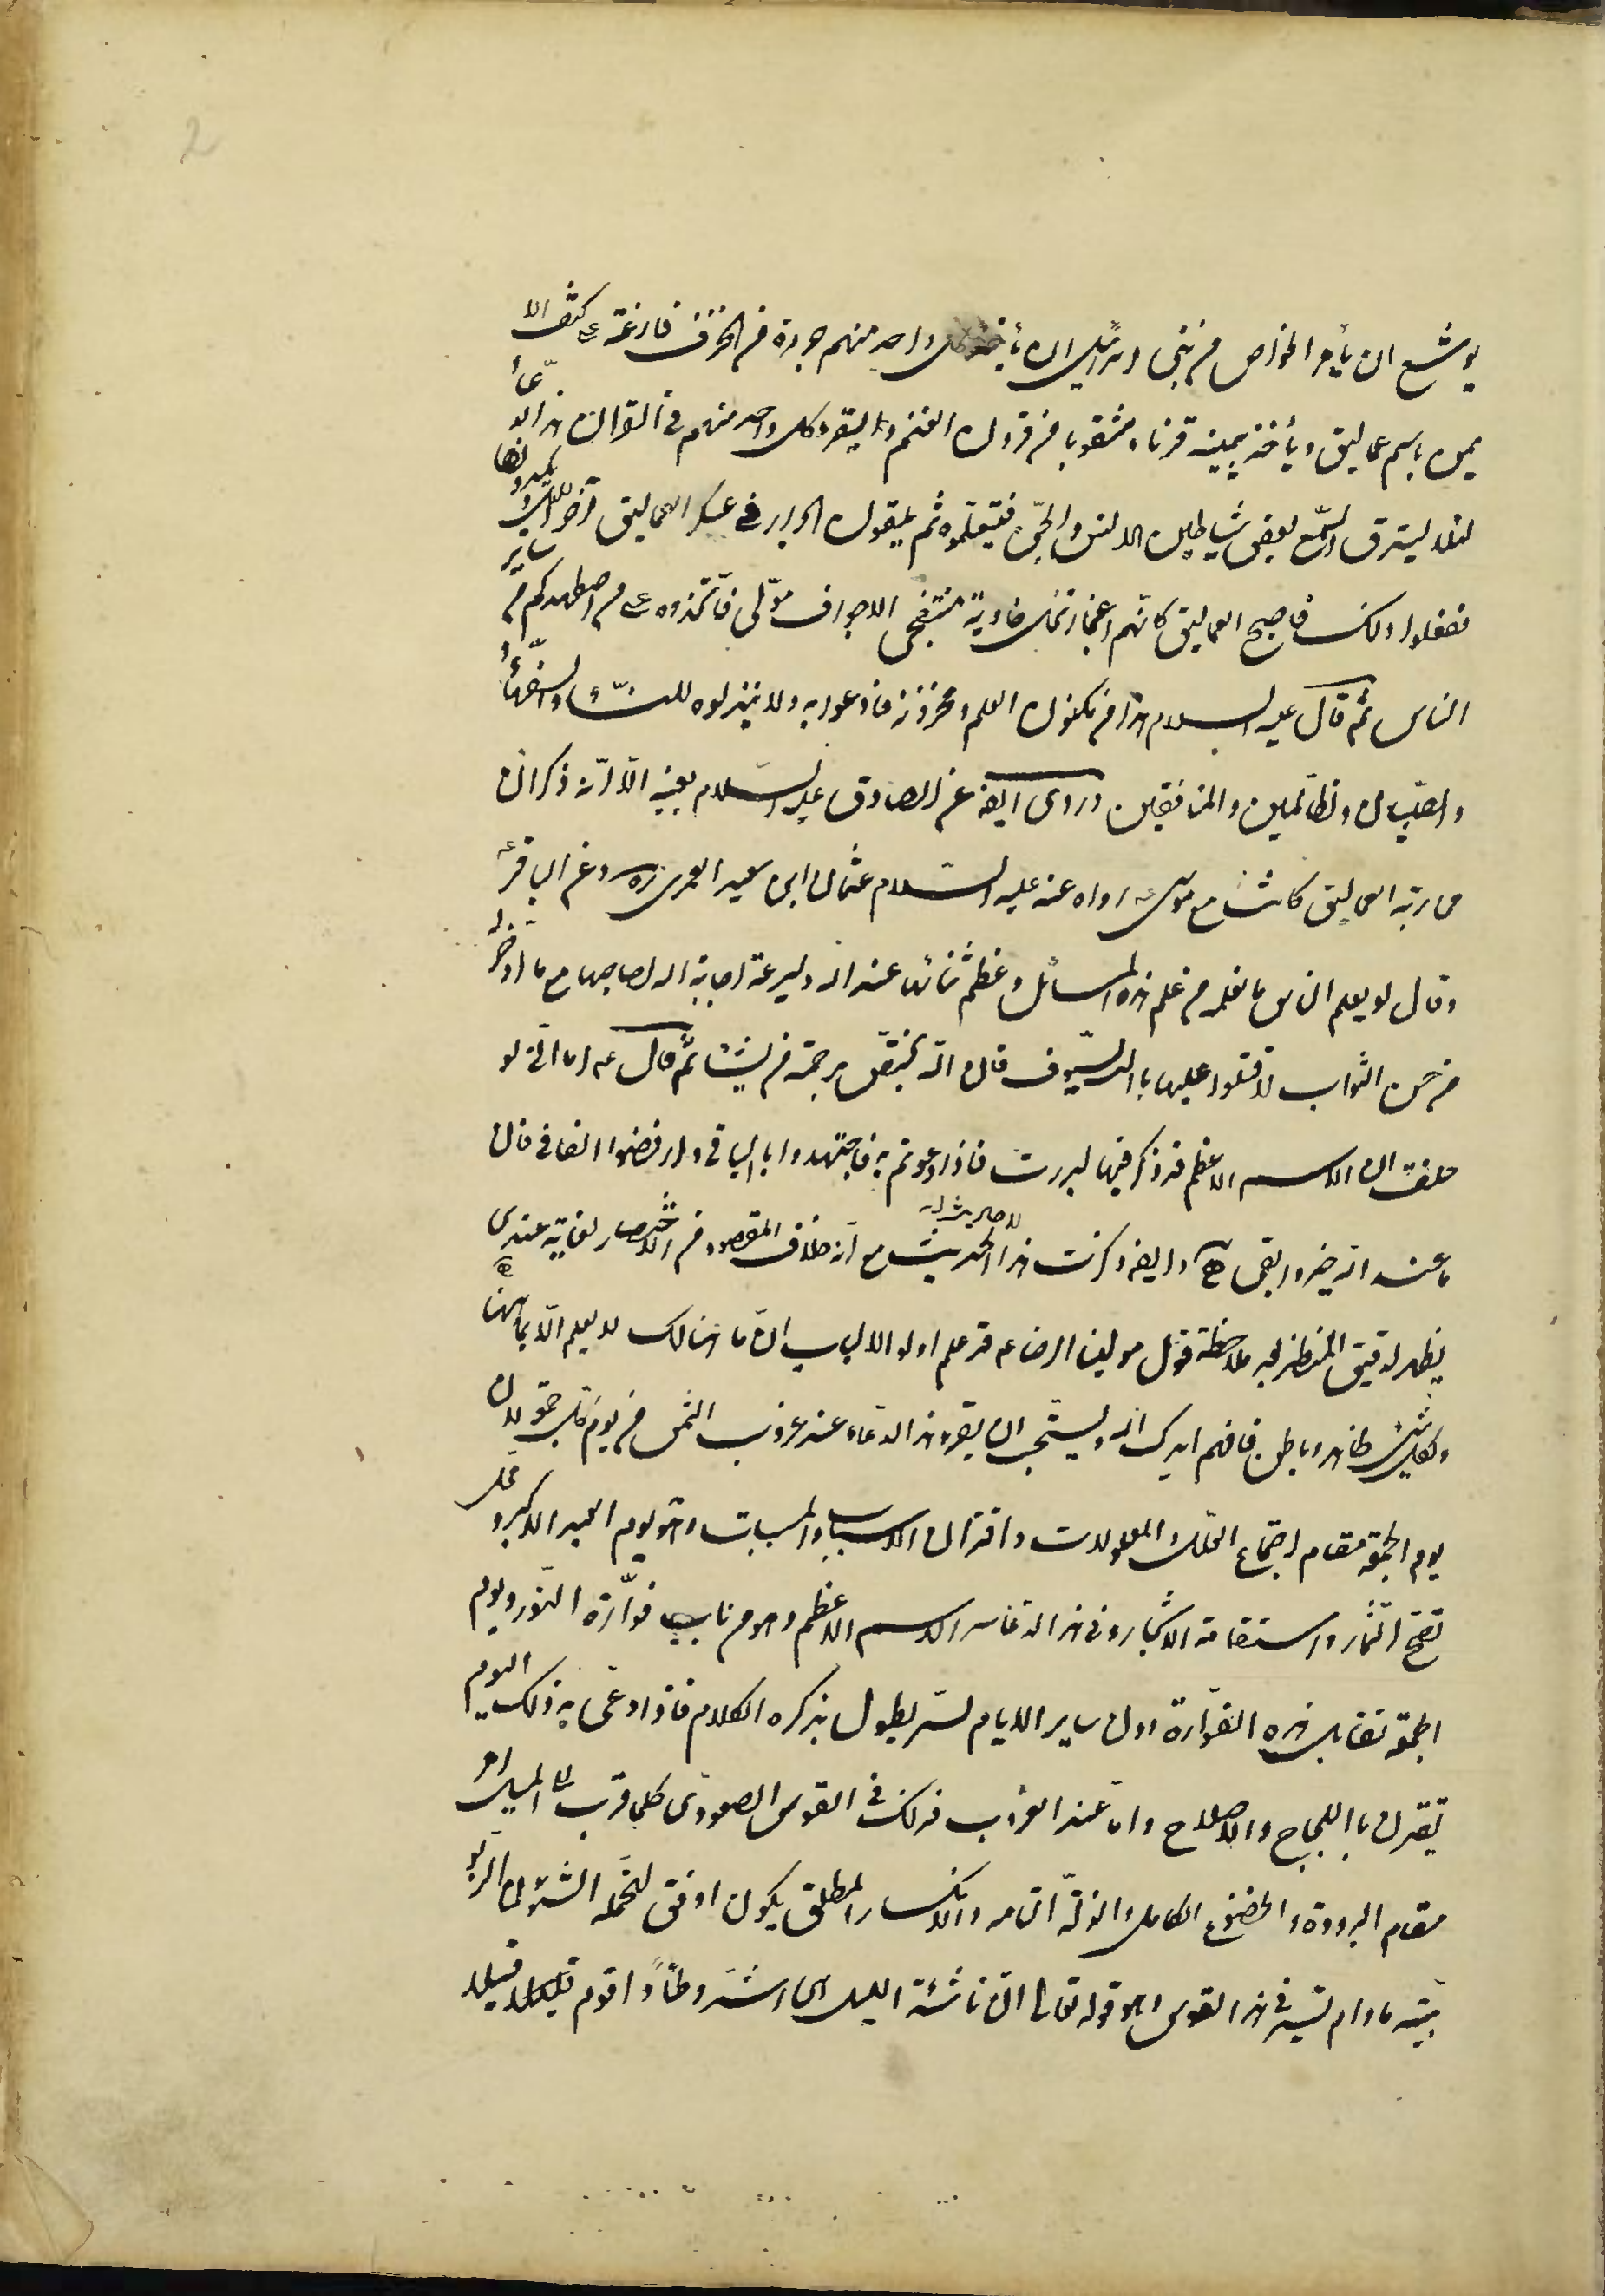 2
يوشع ان يأمر الخواص من بني اسرائيل ان يأخذ كل واحد منهم جرة من الخزف فارغة على كتفه الا
يمن باسم عماليق و يأخذ بيمينه قرنا مثقوبا من قرون الغنم و يقرء كل واحد منهم في القرن هذا الدّعأ
لئلا يسترق السّمع بعض شياطين الانس و الجنّ فيتعلّموه ثم يلقون الجرار في عسكر العماليق آخر اللّيل و يكسرونها
ففعلوا ذلك فاصبح العماليق كانّهم اعجاز نخل خاوية منتفخى الاجواف موتى فاتّخذوه على من اضطهدكم من ساير
الناس ثم قال عليه السلام هذا من مكنون العلم و مخزونه فادعوا به و لا تبذلوه للنسّاء و السّفهأ و
و الصّبيان و الظالمين و المنافقين و روى ايضا عن الصادق عليه السّلام بعينه الّا انّه ذكر ان
محاربة العماليق كانت مع موسى ع رواه عنه عليه السّلام عثمان ابن سعيد العمرى ره و عن الباقر ع
و قال لو يعلم الناس ما نعلمه من علم هذه المسائل و عظم شأنها عند الله و سرعة اجابة الله لصاحبها مع ما ادّخر له
من حسن الثواب لاقتتلوا عليها بالسّيوف فان الله يختصّ برحمته من يشاء ثم قال ع اما انّى لو
حلفت ان الاسم الاعظم قد ذكر فيها لبررت فاذا دعوتم به فاجتهدوا بالباقى و ارفضوا الفانى فان
ما عند الله خير و ابقى و ايضا ذكرت هذا الحديث مع انّه خلاف المقصود من الاختصار لغاية عندى
يظهر لدقيق النظر بعد ملاحظة قول مولينا الرضا ع قد علم اولو الالباب انّ ما هنالك لا يعلم الّا بما هيهنا
و لكل شئ ظاهر و باطن فافهم ايدك الله و يستحب ان يقرء هذا الدّعاء عند غروب الشمس من يوم الجمعة لان
يوم الجمعة مقام اجتماع العلل و المعلولات و اقتران الاسباب و المسببات و هو يوم العيد الاكبر و محل
نضج الثّمار و استقامة الاشجار و فى هذا الدّعا سر الاسم الاعظم و هو من باب فوّارة النّور و يوم
الجمعة تقابل هذه الفوّارة دون ساير الايام لسّر يطول بذكره الكلام فاذا دعى به ذلك اليوم
يقرن باالنجاح و الاصلاح و امّا عند الغروب فذلك فى القوس الصعودى كلما قرب الى الميل و
مقام البرودة و الخضوع الكامل و الذلّة التامه و الانكسار المطلق يكون اوفق لتحمّله الشئون الربّو
بيّته مادام يسير فى هذا القوس و هو قوله تعالى انّ ناشئة الليل هى اشدّ وطأً و اقوم قيلا